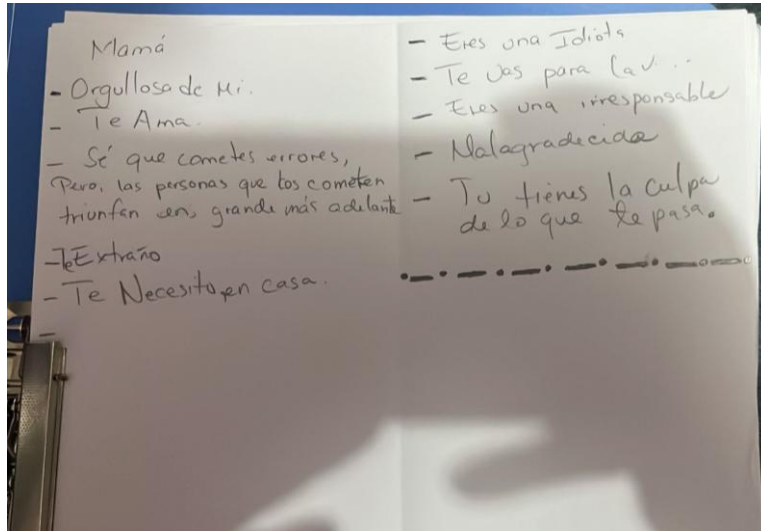 Mamá
- Orgullosa de Mi.
- Te Ama.
- Sé que cometes errores,
Pero, las personas que los cometen
triunfan en, grande más adelante
- Te Extraño
- Te Necesito en casa.
-
- Eres una Idiota
- Te vas para la v...
- Eres una irresponsable
- Malagradecida
- Tu tienes la culpa
de lo que te pasa.